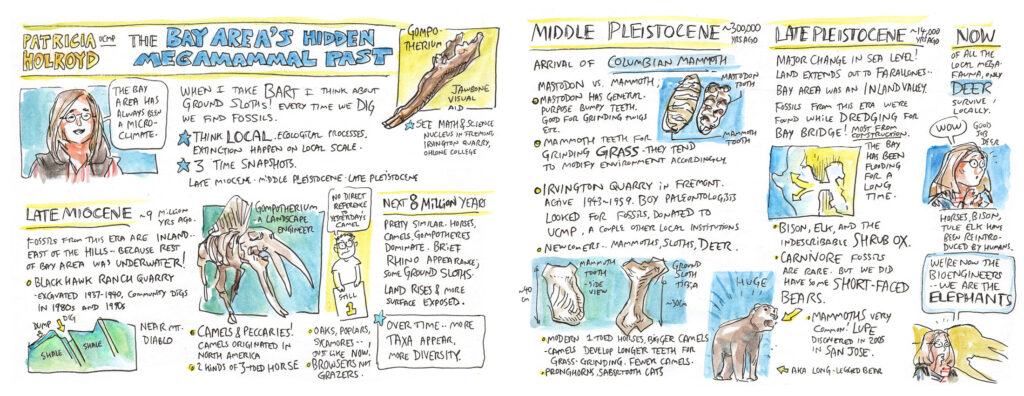 PATRICIA UCMP
HOLROYD
THE BAY AREA'S HIDDEN
MEGAMAMMAL PAST
THE BAY
AREA HAS
ALWAYS
BEEN
A MICRO-
CLIMATE.
WHEN I TAKE BART I THINK ABOUT
GROUND SLOTHS! EVERY TIME WE DIG
WE FIND FOSSILS.
THINK LOCAL. ECOLOGICAL PROCESSES,
EXTINCTION HAPPEN ON LOCAL SCALE.
3 TIME SNAPSHOTS.
LATE MIOCENE · MIDDLE PLEISTOCENE · LATE PLEISTOCENE
GOMPO-
THERIUM
JAWBONE
VISUAL
AID
SEE MATH & SCIENCE
NUCLEUS IN FREMONT,
IRVINGTON QUARRY,
OHLONE COLLEGE
LATE MIOCENE ~9 MILLION
YRS AGO.
FOSSILS FROM THIS ERA ARE INLAND..
EAST OF THE HILLS - BECAUSE REST
OF BAY AREA WAS UNDERWATER!
BLACK HAWK RANCH QUARRY
- EXCAVATED 1937-1940, COMMUNITY DIGS
IN 1980s AND 1990s
DUMP
DIG
SHALE
SHALE
NEAR MT.
DIABLO
GOMPOTHERIUM
A LANDSCAPE
ENGINEER
CAMELS & PECCARIES!
CAMELS ORIGINATED IN
NORTH AMERICA
2 KINDS OF 3-TOED HORSE
NO DIRECT
REFERENCE
TO
YESTERDAY'S
CAMEL
STILL
1
OAKS, POPLARS,
SYCAMORES -
JUST LIKE NOW.
BROWSERS NOT
GRAZERS.
NEXT 8 MILLION YEARS
PRETTY SIMILAR. HORSES,
CAMELS, GOMPOTHERES
DOMINATE. BRIEF
RHINO APPEARANCE,
SOME GROUND SLOTHS.
LAND RISES & MORE
SURFACE EXPOSED.
OVER TIME -- MORE
TAXA APPEAR,
MORE DIVERSITY.
MIDDLE PLEISTOCENE ~300,000
YRS AGO
ARRIVAL OF COLUMBIAN MAMMOTH
MASTODON VS. MAMMOTH
MASTODON HAS GENERAL-
PURPOSE BUMPY TEETH.
GOOD FOR GRINDING TWIGS
ETC.
MASTODON
TOOTH
MAMMOTH
TOOTH
MAMMOTH TEETH FOR
GRINDING GRASS - THEY TEND
TO MODIFY ENVIRONMENT ACCORDINGLY
IRVINGTON QUARRY IN FREMONT.
ACTIVE 1943-1959. BOY PALEONTOLOGISTS
LOOKED FOR FOSSILS, DONATED TO
UCMP, A COUPLE OTHER LOCAL INSTITUTIONS
NEWCOMERS.. MAMMOTHS, SLOTHS, DEER.
MAMMOTH
TOOTH
- SIDE
VIEW
GROUND
SLOTH
TIBIA
MODERN 1-TOED HORSES, BIGGER CAMELS
- CAMELS DEVELOP LONGER TEETH FOR
GRASS-GRINDING. FEWER CAMELS.
PRONGHORNS, SABRETOOTH CATS
HUGE
LATE PLEISTOCENE ~14,000
YRS AGO
MAJOR CHANGE IN SEA LEVEL!
LAND EXTENDS OUT TO FARALLONES--
BAY AREA WAS AN INLAND VALLEY.
FOSSILS FROM THIS ERA WERE
FOUND WHILE DREDGING FOR
BAY BRIDGE! MOST FROM
CONSTRUCTION.
THE BAY
HAS BEEN
FLOODING
FOR A
LONG
TIME.
BISON, ELK, AND THE
INDESCRIBABLE SHRUB OX.
CARNIVORE FOSSILS
ARE RARE. BUT WE DID
HAVE SOME SHORT-FACED
BEARS.
MAMMOTHS VERY
COMMON! LUPE
DISCOVERED IN 2005
IN SAN JOSE.
AKA LONG-LEGGED BEAR
NOW
OF ALL THE
LOCAL MEGA-
FAUNA, ONLY
DEER
SURVIVE
LOCALLY.
WOW
GOOD
JOB
DEER
HORSES, BISON,
TULE ELK HAVE
BEEN REINTRO-
DUCED BY HUMANS.
WE'RE NOW THE
BIOENGINEERS
-- WE ARE THE
ELEPHANTS